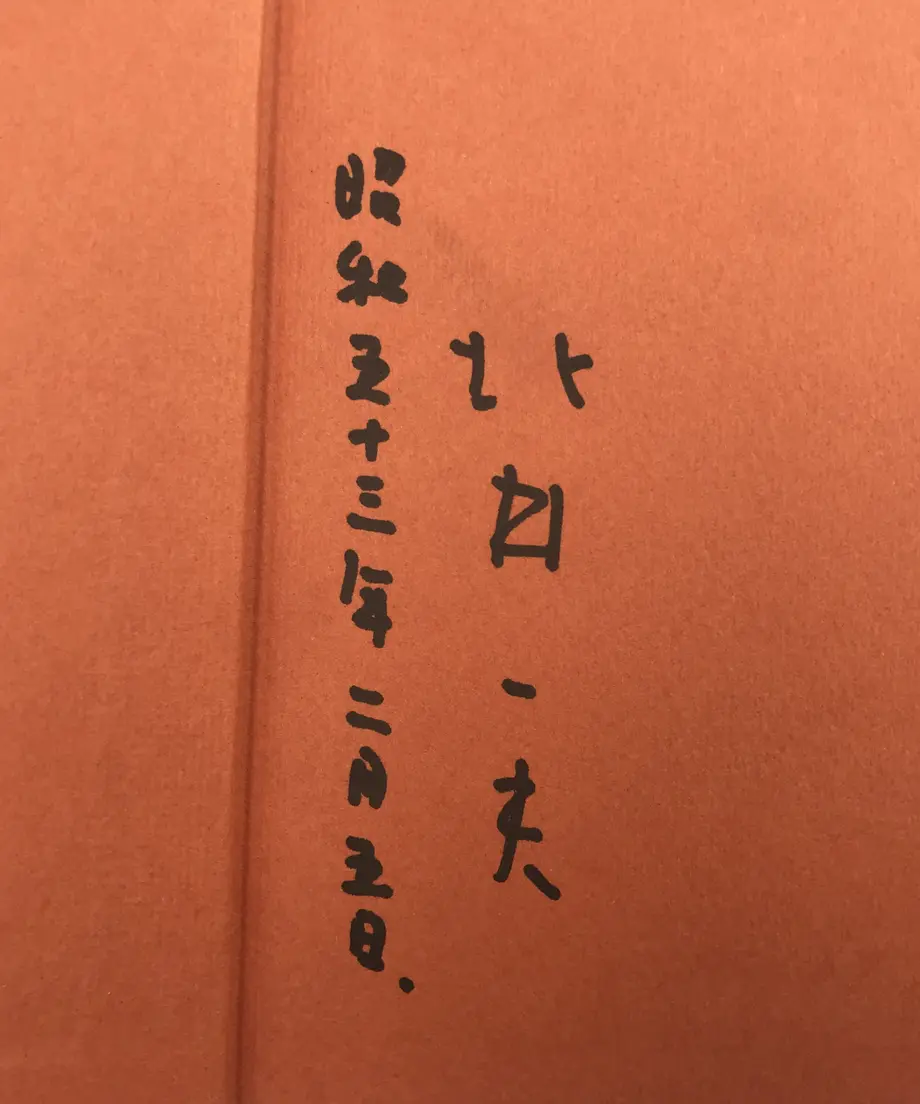 北 一夫
昭和五十三年二月五日.